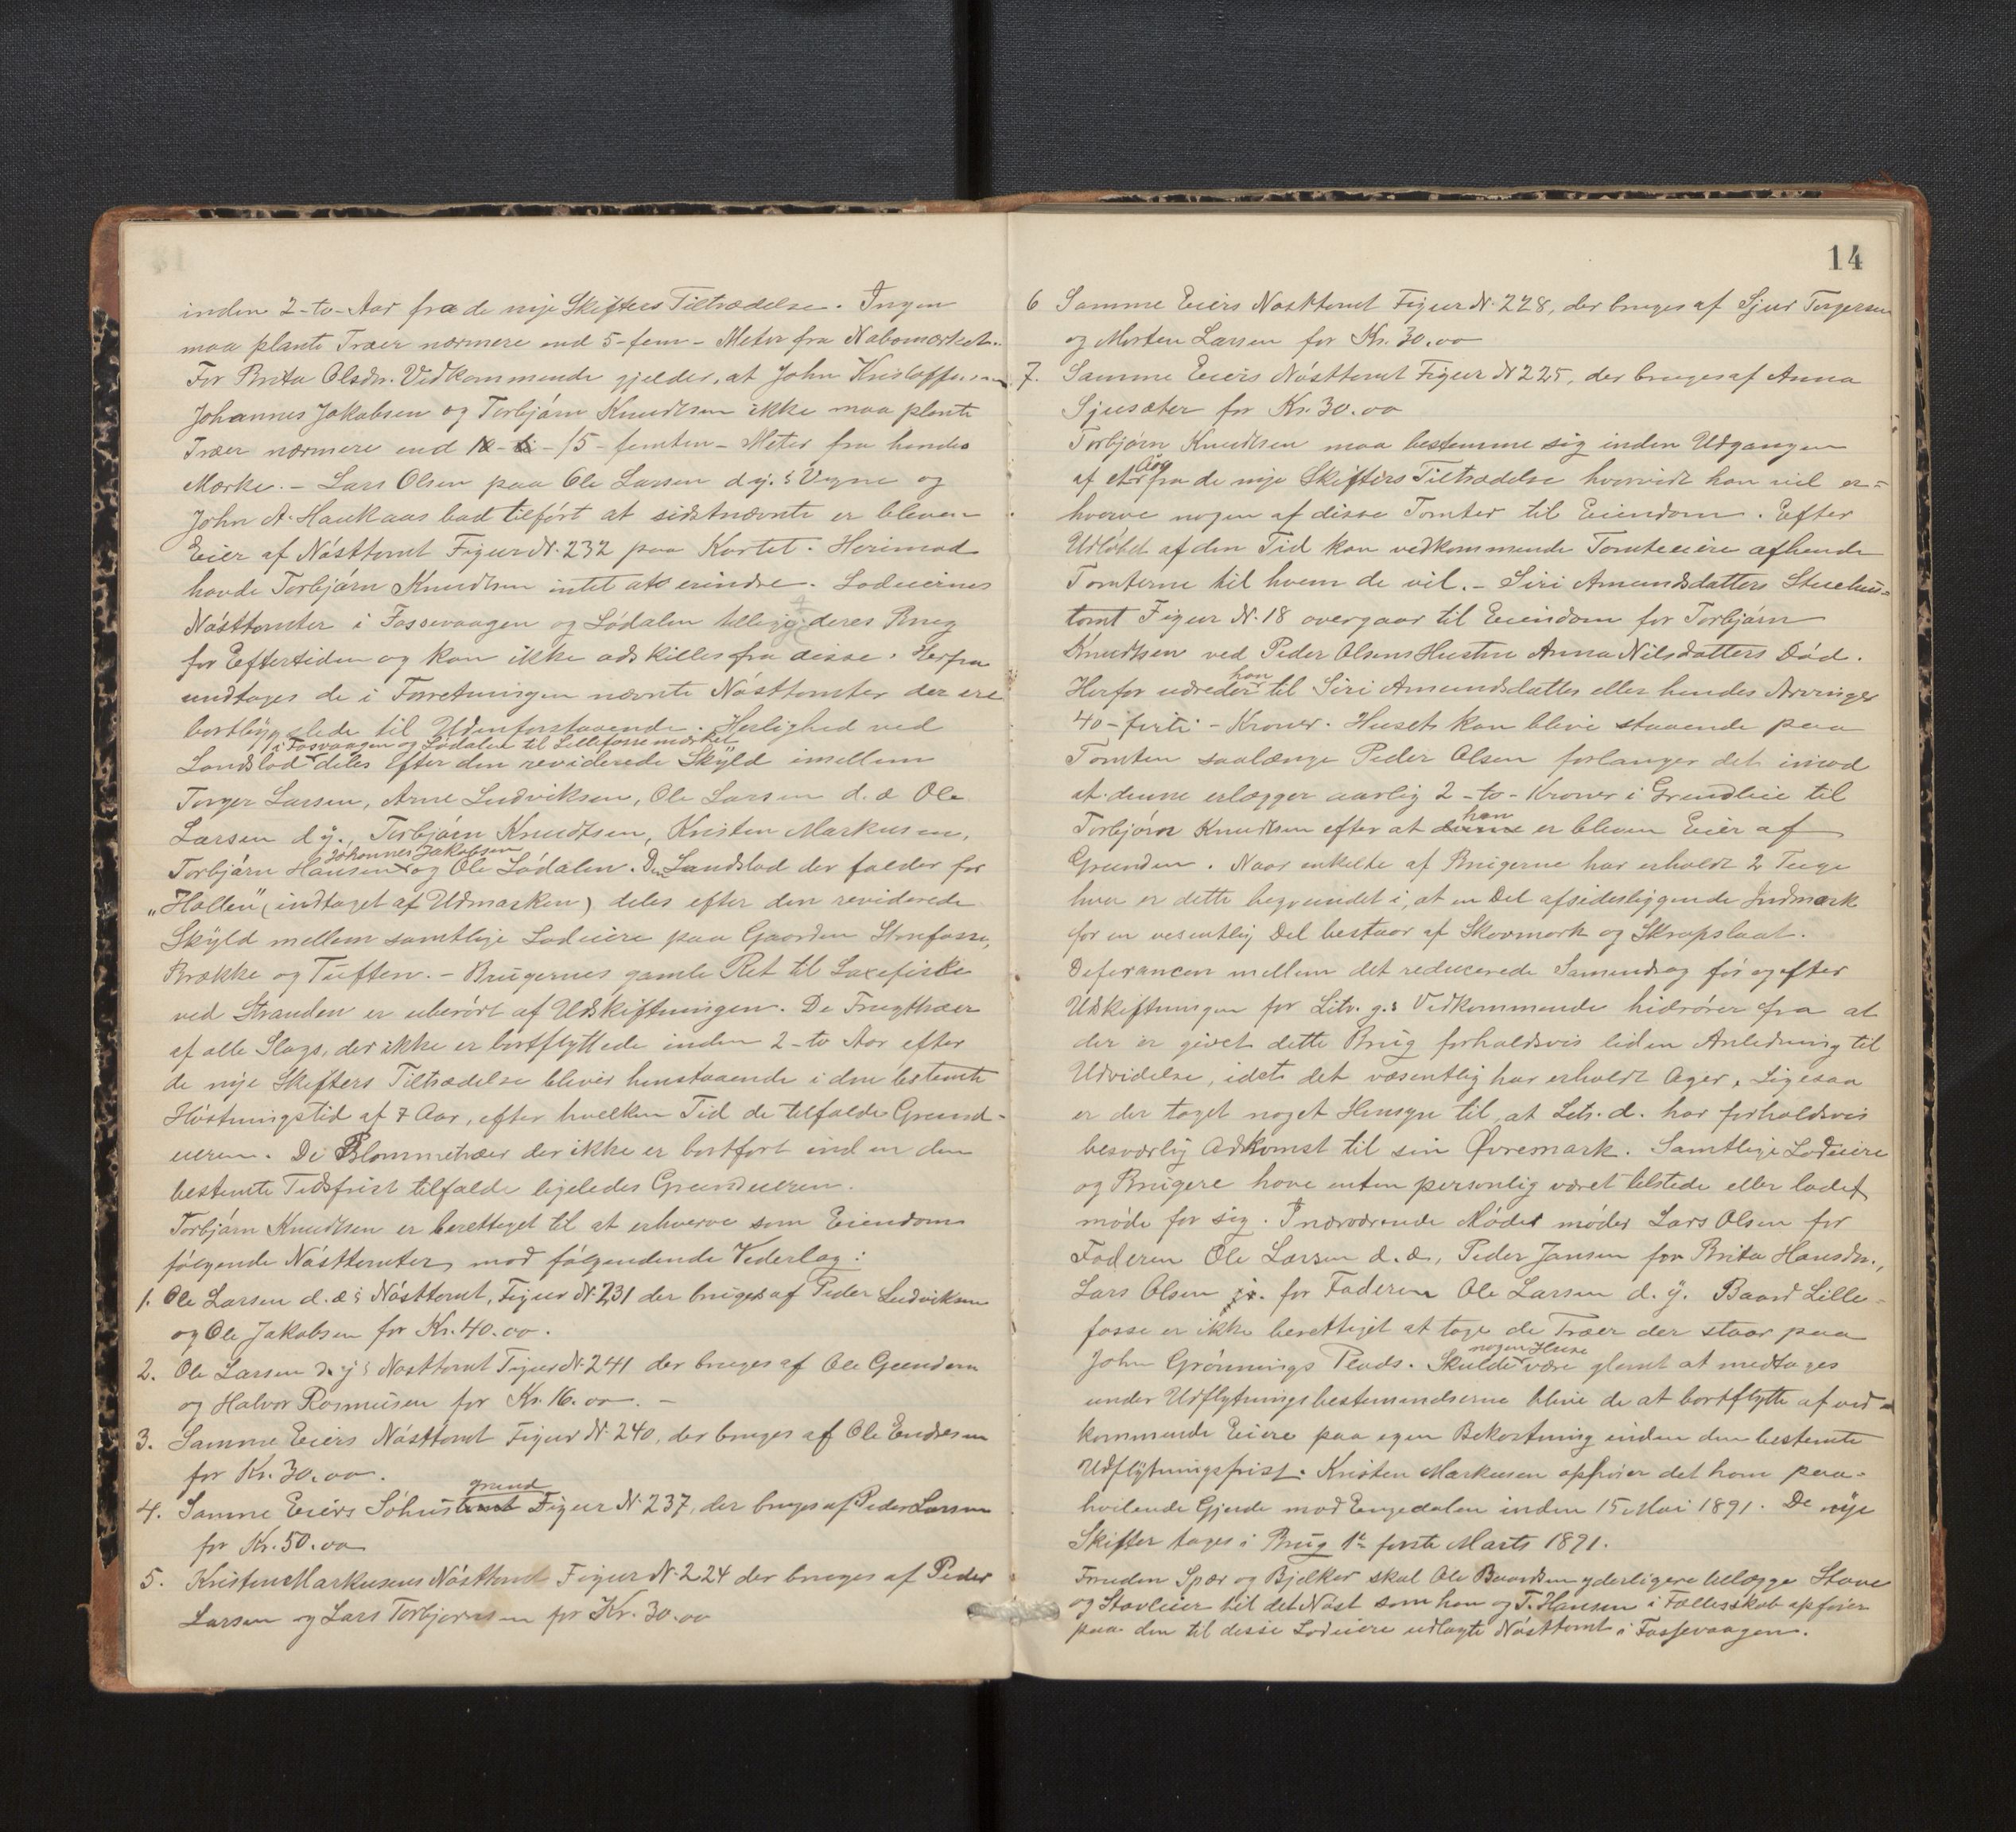 inden 2-to-Aar fra de nije Skifters Tiltrædelse. Ingen
maa plante Træer nærmere end 5-fem-Meter fra Nabomærket.
For Brita Olsdn. Vedkommende gjelder, at John Kristoffersen
Johannes Jakobsen og Torbjørn Knudtsen ikke maa plante
Træer nærmere end 10-ti-15-femten-Meter fra hendes
Mærke.- Lars Olsen paa Ole Larsen d.ÿ.s Vegne og
John A. Haukaas bad tilført at sidstnævnte er bleven
Eier af Nøsttomt Figur N. 232 paa Kartet. Herimod
havde Torbjørn Knudtsen intet at erindre. Lodeiernes
Nøsttomter i Fossevaagen og Lødalen tillegges deres Brug
for Eftertiden og kan ikke adskilles fra disse. Herfra
undtages de i Forretningen nævnte Nøsttomter der ere
bortbygslede til Udenforstaaende. Herlighed ved
i Fosvaagen og Lødalen til Lillefosse mærket
Landslod deles efter den reviderede Skÿld imellem
Torger Larsen, Arne Ludviksen, Ole Larsen d.æ. Ole
Larsen d ÿ., Torbjørn Knudtsen, Kristen Markusen,
Johannes Jakobsen
Torbjørn Hansen og Ole Lødalen. Den Landslod der falder for
"Hallen" (indtaget af Udmarken) deles efter den reviderede
Skÿld mellem samtlige Lodeiere paa Gaarden Storefosse,
Brække og Tuften.- Brugernes gamle Ret til Laxefiske
ved Stranden er uberørt af Udskiftningen. De Frugttræer
af alle Slags, der ikke er bortflyttede inden 2-to Aar efter
de nije Skifters Tiltrædelse bliver henstaaende i den bestemte
Høstningstid af 7 Aar, efter hvilken Tid de tilfalde Grund-
eieren. De Blommetræer der ikke er bortført inden den
bestemte Tidsfrist tilfalde ligeledes Grundeieren.
Torbjørn Knudtsen er berettiget til at erhverve som Eiendom
følgende Nøsttomter mod følgendende Vederlag:
1. Ole Larsen d.æ.s Nøsttomt, Figur N. 231 der bruges af Peder Ludviksen
og Ole Jakobsen for Kr. 40.00.
2. Ole Larsen d.ÿ.s Nøsttomt Figur N. 241 der bruges af Ole
og Halvor Rasmusen for Kr. 16.00.-
3. Samme Eiers Nøsttomt Figur N. 240, der bruges af Ole Endresen
for Kr. 30.00.
grund
4. Samme Eiers Søhustomt Figur N. 237, der bruges af Peder Larsen
for Kr. 50.00
5. Kristen Markusens Nøsttomt Figur N. 224 der bruges af Peder
Larsen og Lars Torbjørnsen for Kr. 30.00
14
6 Samme Eiers Nøsttomt Figur N. 228, der bruges af Sjur Torgersen
og Morten Larsen for Kr. 30.00
7. Samme Eiers Nøsttomt Figur N 225, der bruges af Anna
Sjusæter for Kr. 30.00
Torbjørn Knudtsen maa bestemme sig inden Udgangen
Aug
af Aar fra de nije Skifters Tiltrædelse hvorvidt han vil er-
hverve nogen af disse Tomter til Eiendom. Efter
Udløbet af den Tid kan vedkommende Tomteeiere afhende
Tomterne til hvem de vil.- Siri Amundsdatters Stuehus-
tomt Figur N. 18 overgaar til Eiendom for Torbjørn
Knudtsen ved Peder Olsens Hustru Anna Nilsdatters Død.
han
Herfor udreder til Siri Amundsdatter eller hendes Arvinger
40-førti-Kroner. Huset kan blive staaende paa
Tomten saalænge Peder Olsen forlanger det imod
at denne erlægger aarlig 2-to-Kroner i Grundleie til
han
Torbjørn Knudtsen efter at denne er bleven Eier af
Grunden. Naar enkelte af Brugerne har erholdt 2 Teige
hver er dette begrundet i, at en Del afsidesliggende Indmark
for en vesentlig Del bestaar af Skovmark og Skrapslaat.
Deferancen mellem det reducerede Sammendrag før og efter
Udskiftningen for Litr. g.s Vedkommende hidrører fra at
der er givet dette Brug forholdsvis liden Anledning til
Udvidelse, idet det væsentlig har erholdt Ager. Ligesaa
er der taget noget Hensyn til, at Litr. d. har forholdsvis
besværlig Adkomst til sin Øvremark. Samtlige Lodeiere
og Brugere have enten personlig været tilstede eller ladet
møde for sig. I nærværende Møde møder Lars Olsen for
Faderen Ole Larsen d.æ., Peder Jansen for Brita Hansdn.,
Lars Olsen jr. for Faderen Ole Larsen d.ÿ. Baard Lille-
fosse er ikke berettiget at tage de Træer der staar paa
nogen Huse
John Grønnings Plads. Skulde være glemt at medtages
under Udflytningsbestemmelserne blive de at bortflytte af ved-
kommende Eiere paa egen Bekostning inden den bestemte
Udflytningsfrist. Kristen Markusen opfører det ham paa-
hvilende Gjerde mod Engedalen inden 15 Mai 1891. De nÿe
Skifter tages i Brug 1ste første Marts 1891.
Foruden Spær og Bjelker skal Ole Baardsen yderligere tillægge Stave
og Stavleier til det Nøst som han og T. Hansen i Fællesskab opfører
paa den til disse Lodeiere udlagte Nøsttomt i Fossevaagen.